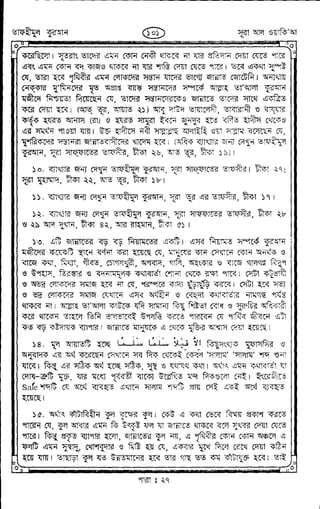 তাফহীমুল কুরআন
১০১
সূরা আল ওয়াকিআ
করেছিলো। সুতরাং তাদের এমন কোন নেকী থাকবে না যার প্রতিদান দেয়া যেতে পারে
এবং এমন কোন বদ কাজও থাকবে না যার শাস্তি দেয়া যেতে পারে। তবে একথা সুস্পষ্ট
যে, তারা হবে পৃথিবীর এমন লোকদের সন্তান যাদের ভাগ্যে জান্নাত জোটেনি। অন্যথায়
নেককার মু'মিনদের মৃত অপ্রাপ্ত বয়স্ক সন্তানদের সম্পর্কে আল্লাহ তা'আলা কুরআন
মজীদে নিশ্চয়তা দিয়েছেন যে, তাদের সন্তানদেরকেও জান্নাতে তাদের সাথে একত্রিত
করে দেয়া হবে। (আত তূর, আয়াত ২১) আবু দাউদ তায়ালেসী, তাবারানী ও বাযযার
কর্তৃক হযরত আনাস (রা) ও হযরত সামুরা ইবনে জুনদুব হতে বর্ণিত হাদীস থেকেও
এর সমর্থন পাওয়া যায়। উক্ত হাদীসে নবী সাল্লাল্লাহু আলাইহি ওয়া সাল্লাম বলেছেন যে,
মুশরিকদের সন্তানরা জান্নাতবাসীদের খাদেম হবে। (অধিক ব্যাখ্যার জন্য দেখুন তাফহীমুল
কুরআন, সূরা সাফফাতের তাফসীর, টীকা ২৬, আত তূর, টীকা ১৯)।
১০. ব্যাখ্যার জন্য দেখুন তাফহীমুল কুরআন, সূরা সাফফাতের তাফসীর, টীকা ২৭;
সূরা মুহাম্মাদ, টীকা ২২, আত তূর, টীকা ১৮।
১১. ব্যাখ্যার জন্য দেখুন তাফহীমুল কুরআন, সূরা তূর এর তাফসীর, টীকা ১৭।
১২. ব্যাখ্যার জন্য দেখুন তাফহীমুল কুরআন, সূরা সাফফাতের তাফসীর, টীকা ২৮
ও ২৯ আদ দুখান, টীকা ৪২, আর রাহমান, টীকা ৫১।
১৩. এটি জান্নাতের বড় বড় নিয়ামতের একটি। এসব নিয়ামত সম্পর্কে কুরআন
মজীদের কয়েকটি স্থানে বর্ণনা করা হয়েছে যে, মানুষের কান সেখানে কোন অনর্থক ও
বাজে কথা, মিথ্যা, গীবত, চোগলখুরী, অপবাদ, গালি, অহংকার ও বাজে গালগল্প বিদ্রূপ
ও উপহাস, তিরস্কার ও বদনামমূলক কথাবার্তা শোনা থেকে রক্ষা পাবে। সেটা কটুভাষী
ও অভদ্র লোকদের সমাজ হবে না যে, পরস্পরে কাদা ছুঁড়াছুঁড়ি করবে। সেটা হবে সভ্য
ও ভদ্র লোকদের সমাজ যেখানে এসব অর্থহীন ও বেহুদা কথাবার্তার নামগন্ধ পর্যন্ত
থাকবে না। আল্লাহ তা'আলা কাউকে যদি সামান্য কিছু শিষ্টতা বোধ ও সুরুচির অধিকারী
করে থাকেন তাহলে তিনি ভালভাবেই উপলব্ধি করতে পারবেন যে পার্থিব জীবনে এটা
কত বড় কষ্টদায়ক ব্যাপার। জান্নাতে মানুষকে এ থেকে মুক্তির আশ্বাস দেয়া হয়েছে।
১৪. মূল আয়াতটি হচ্ছে اِلاَّ قِيْلاً سَلٰمًا سَلٰمًا কিছুসংখ্যক মুফাসসির ও
অনুবাদক এর অর্থ করেছেন সেখানে সব দিক থেকেই কেবল 'সালাম' 'সালাম' শব্দ শুনা
যাবে। কিন্তু এর সঠিক অর্থ হচ্ছে সঠিক, সুস্থ ও যথাযথ কথা। অর্থাৎ এমন কথাবার্তা যা
দোষ-ত্রুটি মুক্ত, যার মধ্যে পূর্ববর্তী বাক্যে উল্লেখিত মন্দ দিকগুলো নেই। ইংরেজীতে
Safe শব্দটি যে অর্থে ব্যবহৃত এখানে সালাম শব্দটি প্রায় সেই একই অর্থে ব্যবহৃত
হয়েছে।
১৫. অর্থাৎ কাঁটাবিহীন কুল বৃক্ষের কুল। কেউ এ কথা ভেবে বিস্ময় প্রকাশ করতে
পারেন যে, কুল আবার এমন কি উৎকৃষ্ট ফল যা জান্নাতে থাকবে বলে সুখবর দেয়া যেতে
পারে। কিন্তু প্রকৃত ব্যাপার হলো, জান্নাতের কুল নয়, এ পৃথিবীর কোন কোন অঞ্চলে এ
ফলটি এমন সুস্বাদু, খোশবুদার ও মিষ্টি হয় যে, একবার মুখে দিলে রেখে দেয়া কঠিন
হয়ে যায়। তাছাড়া কুল যত উন্নতমানের হবে তার গাছ তত কম কাঁটাযুক্ত হবে। তাই
পারা : ২৭